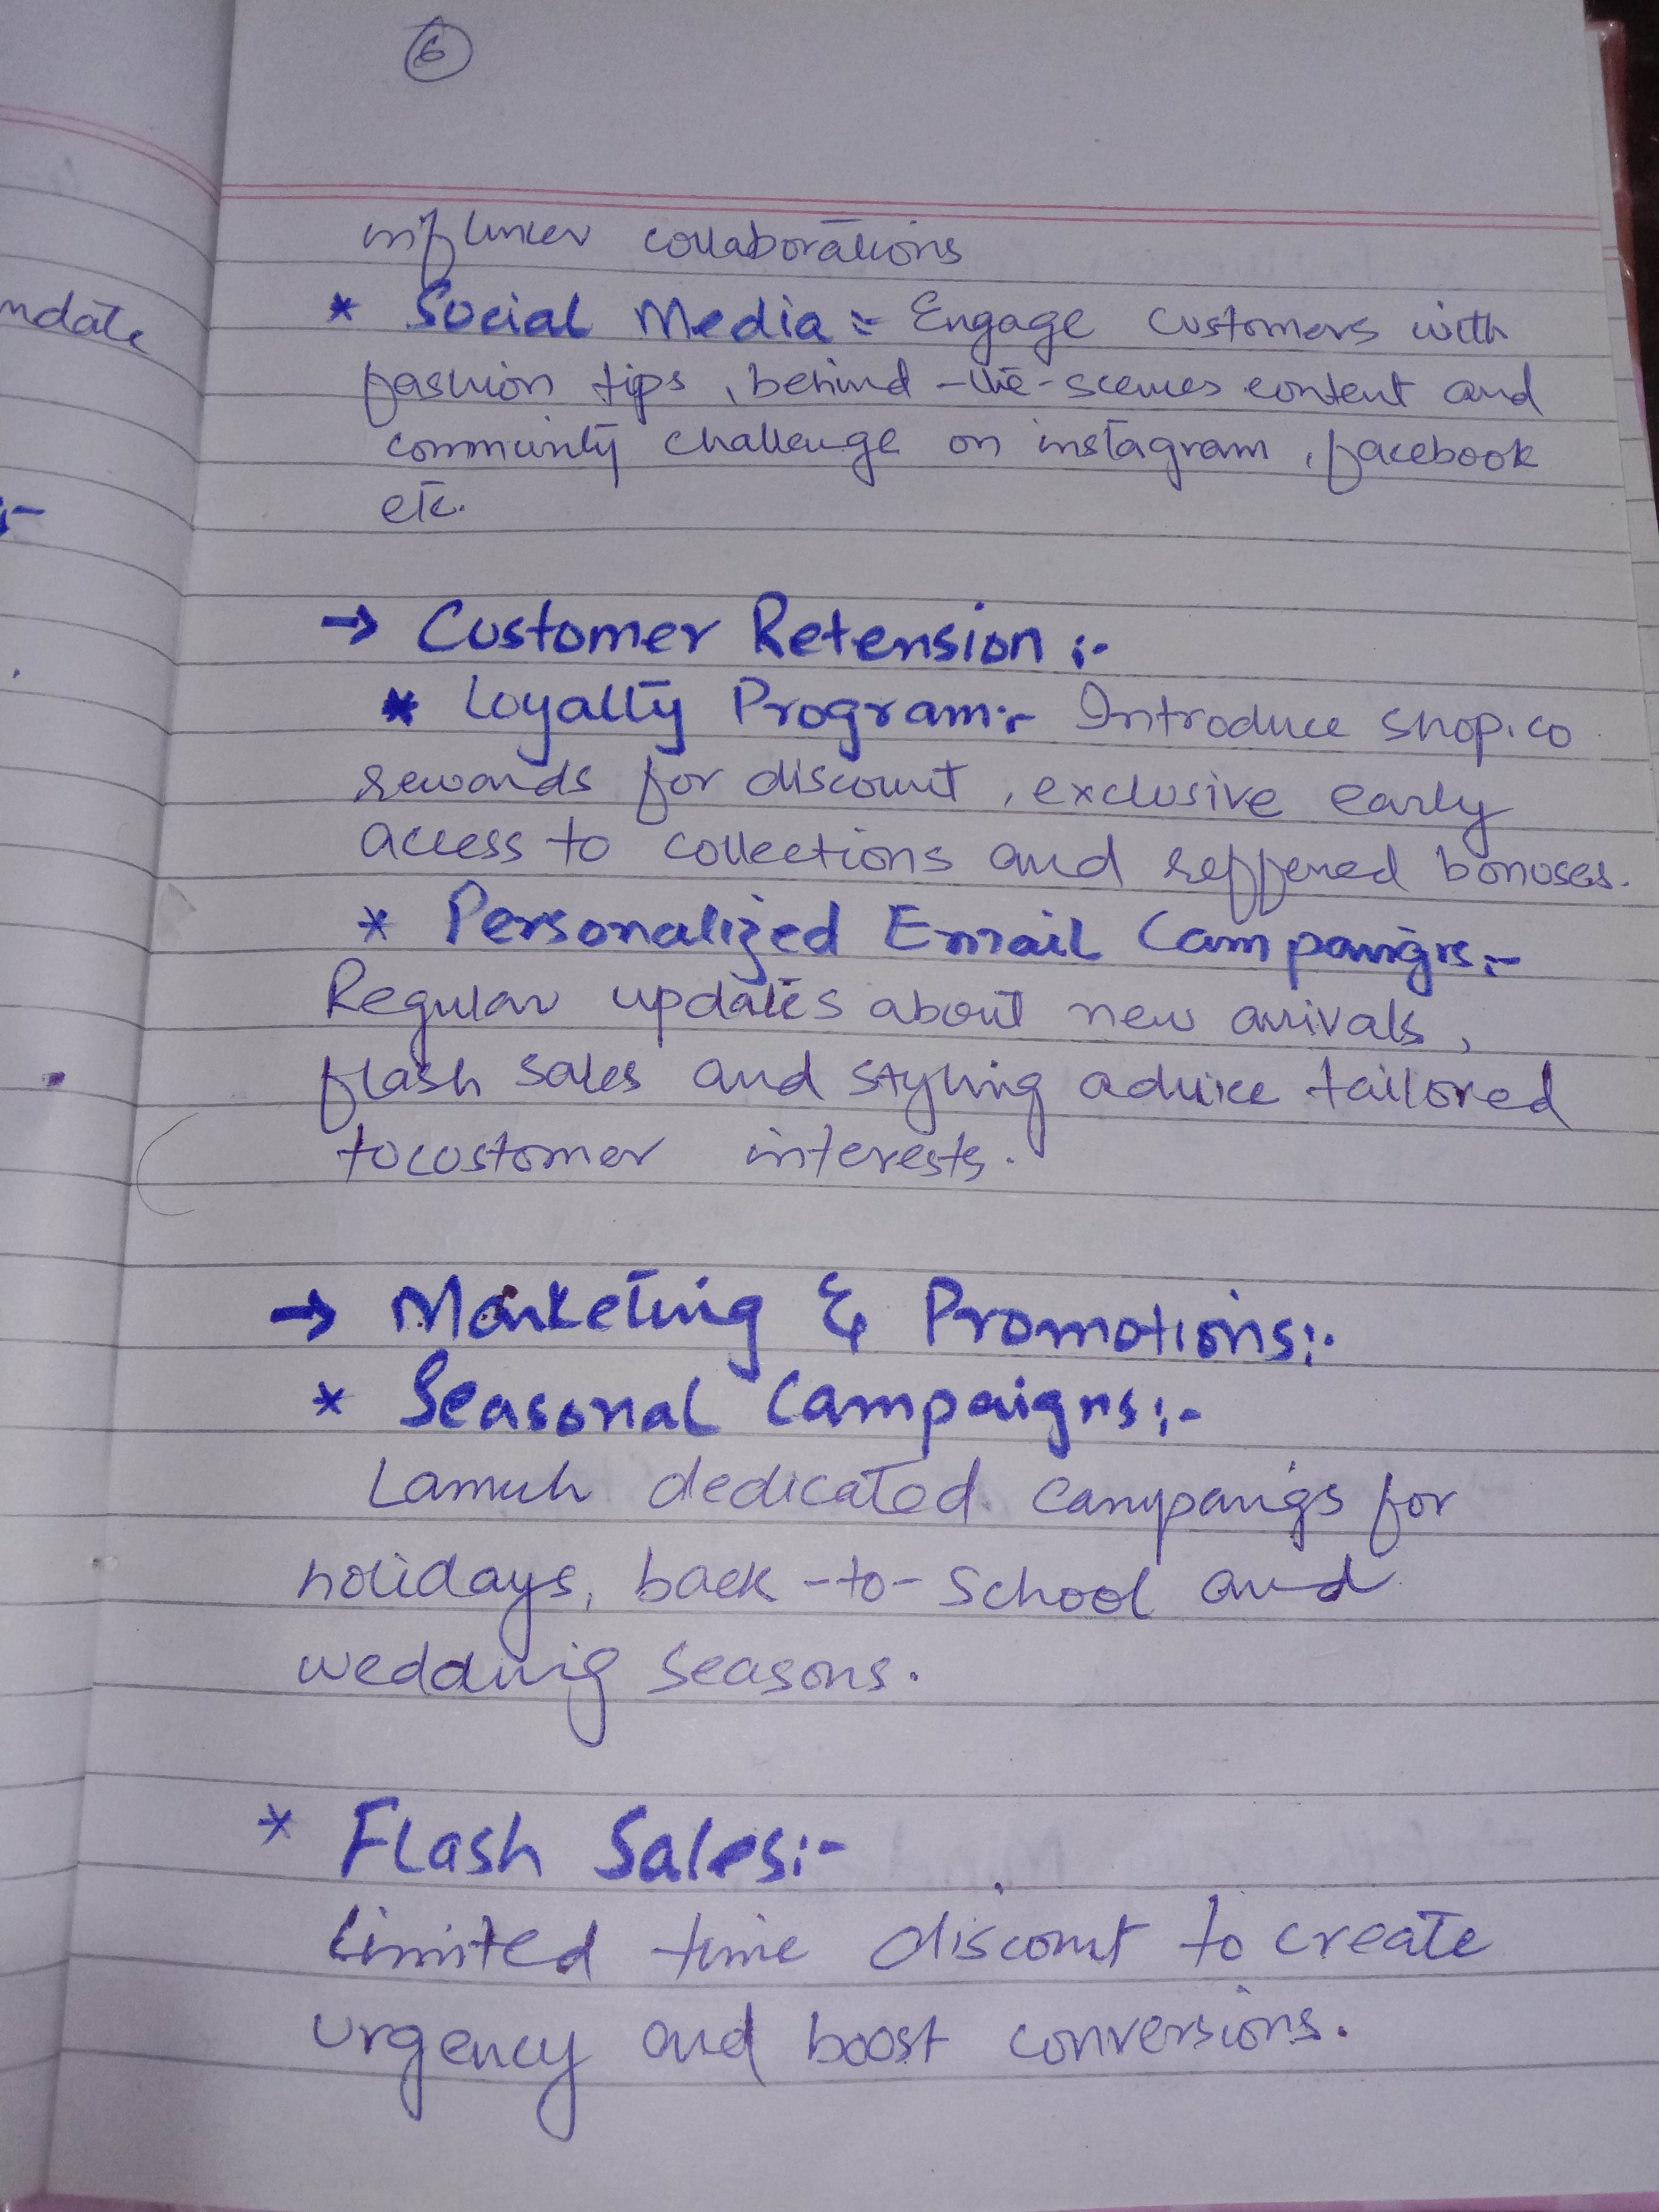 6
influncer collaborations
* Social Media :- Engage customers with
fashion tips, behind-the-scenes content and
community challenge on instagram, facebook
etc.
→ Customer Retension :-
* Loyalty Program:- Introduce shop.co
rewards for discount, exclusive early
access to collections and reffered bonuses.
* Personalized Email Campaigns:-
Regular updates about new arrivals,
flash sales and styling advice tailored
to customer interests.
→ Marketing & Promotions:-
* Seasonal Campaigns:-
Launch dedicated campaigs for
holidays, back-to-school and
wedding seasons.
* Flash Sales:-
Limited time discount to create
urgency and boost conversions.